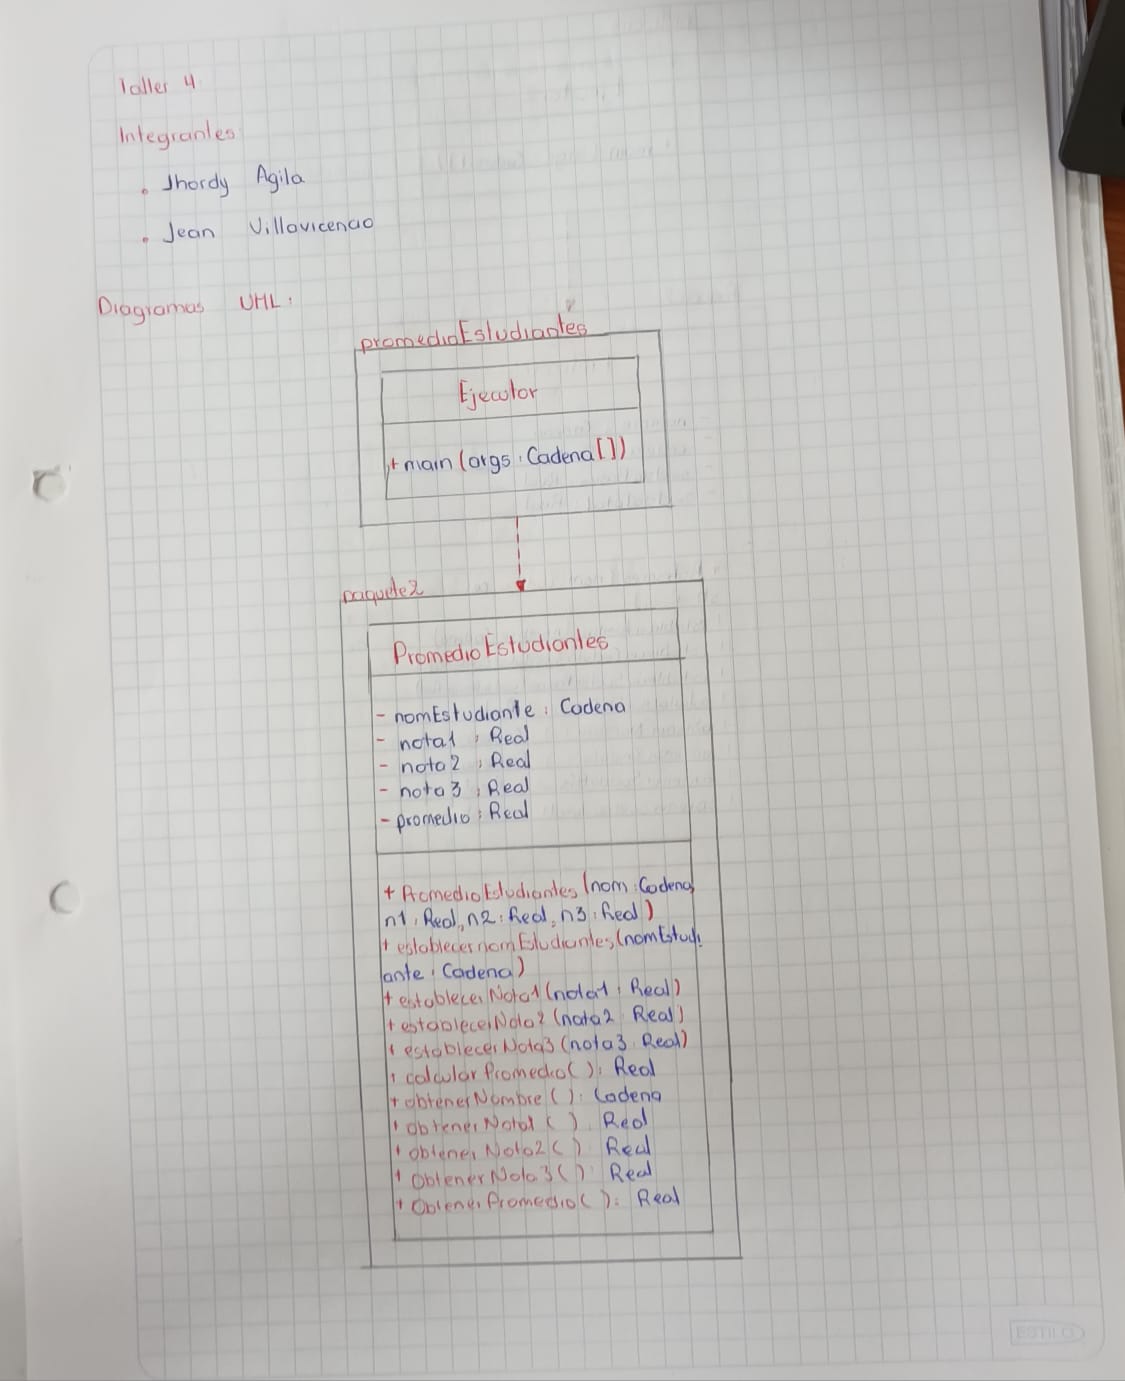 Taller 4
Integrantes
• Jhordy Agila
• Jean Villavicencio
Diagramas UML:
promedioEstudiantes
Ejecutor
+ main (args : Cadena [ ])
paquete2
PromedioEstudiantes
- nomEstudiante : Cadena
- nota1 : Real
- nota2 : Real
- nota3 : Real
- promedio : Real
+ PromedioEstudiantes (nom : Cadena,
n1 : Real, n2 : Real, n3 : Real)
+ establecernomEstudiantes (nomEstudi
ante : Cadena)
+ establecerNota1 (nota1 : Real)
+ establecerNota2 (nota2 Real)
+ establecerNota3 (nota3 Real)
+ calcularPromedio ( ): Real
+ obtenerNombre ( ): Cadena
+ obtenerNota1 ( ) Real
+ obtenerNota2 ( ) Real
+ ObtenerNota3 ( ) Real
+ ObtenerPromedio ( ): Real
ESTILO